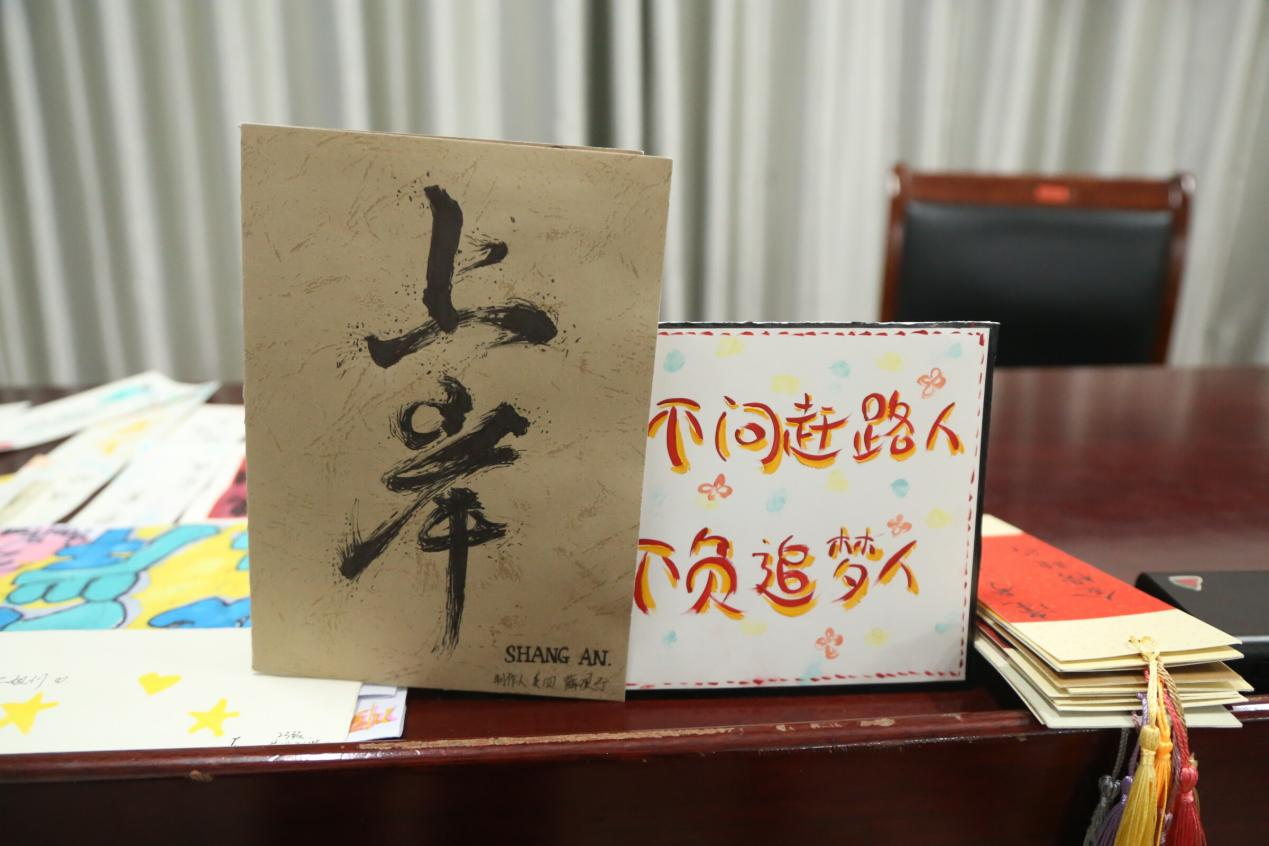 上岸
SHANG AN.
不问赶路人
不负追梦人